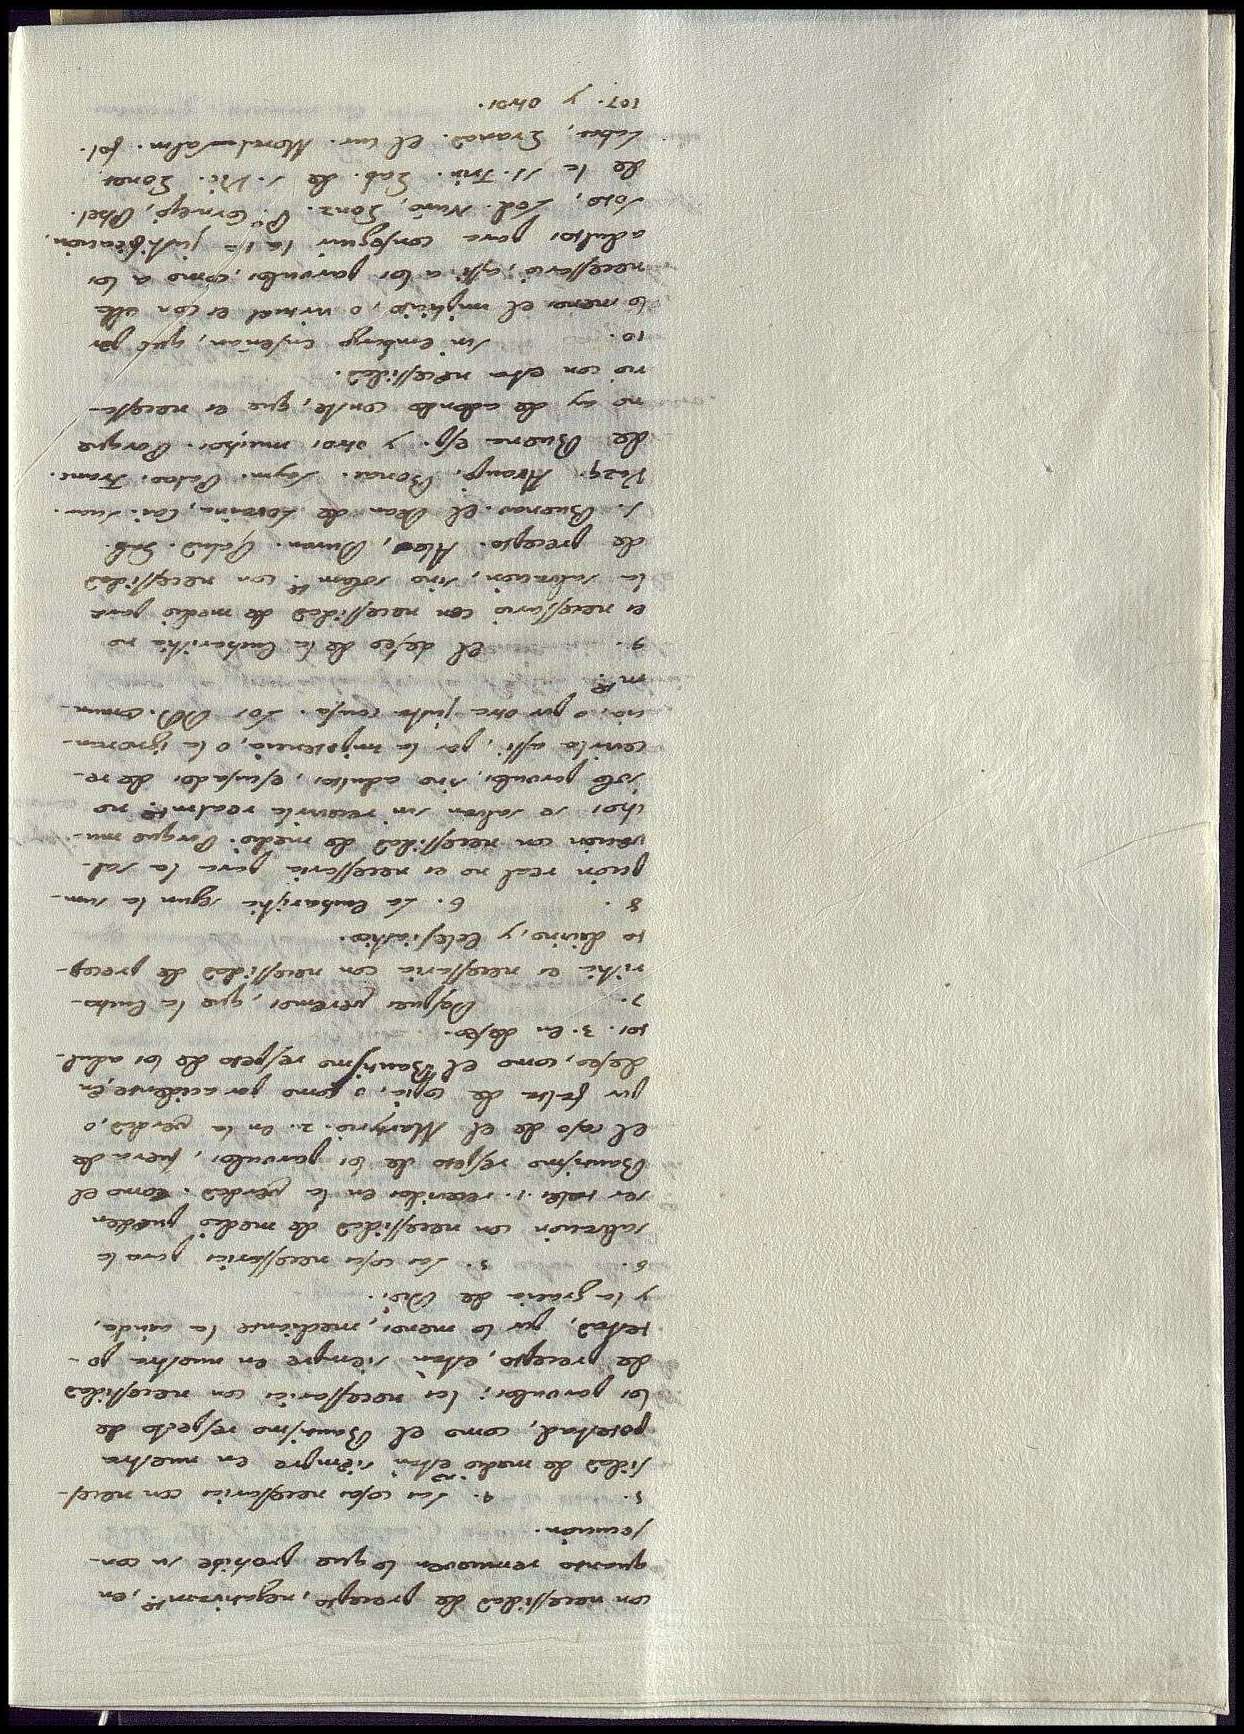 con necessidad de precepto, negativamte, en
quanto remueven lo que prohibe su con-
secucion.
5. 4. Las cosas necessarias con neces-
sidad de medio no estan siempre en nuestra
potestad, como el Bautismo respecto de
los parvulos; las necessarias con necessidad
de precepto, estan siempre en nuestra po-
testad, por lo menos, mediante la aiuda,
y la gracia de Dios.
6. 5. Las cosas necessarias para la
salvacion con necessidad de medio pueden
ser tales. 1. recevidas en la verdad. como el
Bautismo respeto de los parvulos, fuera de
el caso de el Martyrio. 2. en la verdad, o,
por falta de copia, o como por accidente, en
deseo, como el Bautismo respeto de los adul-
tos. 3. en deseo.
7. Despues veremos, que la Eucha-
ristia es necessaria con necessidad de precep-
to divino, y Eclesiastico.
8. 6. La Eucharistia segun la sum-
pcion real no es necessaria para la sal-
vacion con necessidad de medio. Porque mu-
chos se salvan sin recevirla realmte no
solo parvulos, sino adultos, escusados de re-
cevirla assi, por la impotencia, o la ignoran-
cia, o por otra justa causa. Los DD. comun-
mte
9. El deseo de la Eucharistia no
es necessario con necessidad de medio para
la salvacion, sino solamte con necessidad
de precepto. Ales, Duran. Palud. Gab.
S. Buenav. el Dean de Lovaina, Cai. Suar.
Vazq. Aranjo. Bonac. Laym. Palao. Franc.
de Buena esp. y otros muchos. Porque
no ay de adonde conste, que es necessa-
rio con esta necessidad.
10. Sin embargo enseñan, que por
lo menos el implicito, o virtual es con ella
necessario, assi a los parvulos, como a los
adultos para conseguir la 1a justificacion,
Soto, Led. Nuño, Gonz. Po Cornejo, Phel.
de la SS. Trin. Gab. de S. Vic. Gonet
Labat, Granad. el Cur. Moral Salm. fol.
107. y otros.